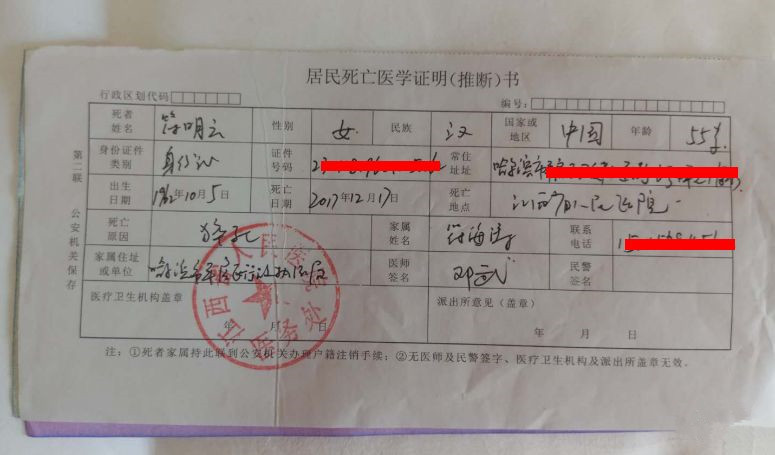 居民死亡医学证明（推断）书
行政区划代码
编号：
死者姓名 符明云 性别 女 民族 汉 国家或地区 中国 年龄 55岁
身份证件类别 身份证 证件号码 常住地址 哈尔滨市
出生日期 1962年10月5日 死亡日期 2017年12月17日 死亡地点 江西省人民医院
死亡原因 猝死 家属姓名 符海涛 联系电话
家属住址或单位 哈尔滨市 医师签名 邓武 民警签名
医疗卫生机构盖章 派出所意见（盖章）
年 月 日 年 月 日
注：①死者家属持此联到公安机关办理户籍注销手续；②无医师及民警签字、医疗卫生机构及派出所盖章无效。
第二联 公安机关保存
江西省人民医院
医务